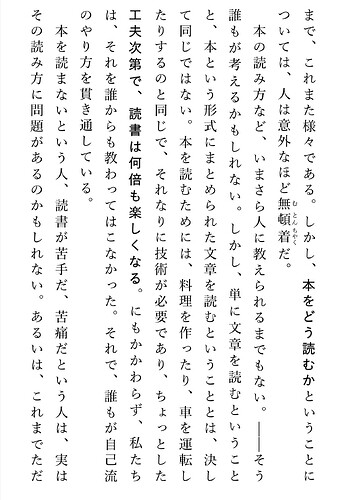 まで、これまた様々である。しかし、本をどう読むかということに
ついては、人は意外なほど無頓着だ。
　本の読み方など、いまさら人に教えられるまでもない。――そう
誰もが考えるかもしれない。しかし、単に文章を読むということ
と、本という形式にまとめられた文章を読むということとは、決し
て同じではない。本を読むためには、料理を作ったり、車を運転し
たりするのと同じで、それなりに技術が必要であり、ちょっとした
工夫次第で、読書は何倍も楽しくなる。にもかかわらず、私たち
は、それを誰からも教わってはこなかった。それで、誰もが自己流
のやり方を貫き通している。
　本を読まないという人、読書が苦手だ、苦痛だという人は、実は
その読み方に問題があるのかもしれない。あるいは、これまでただ